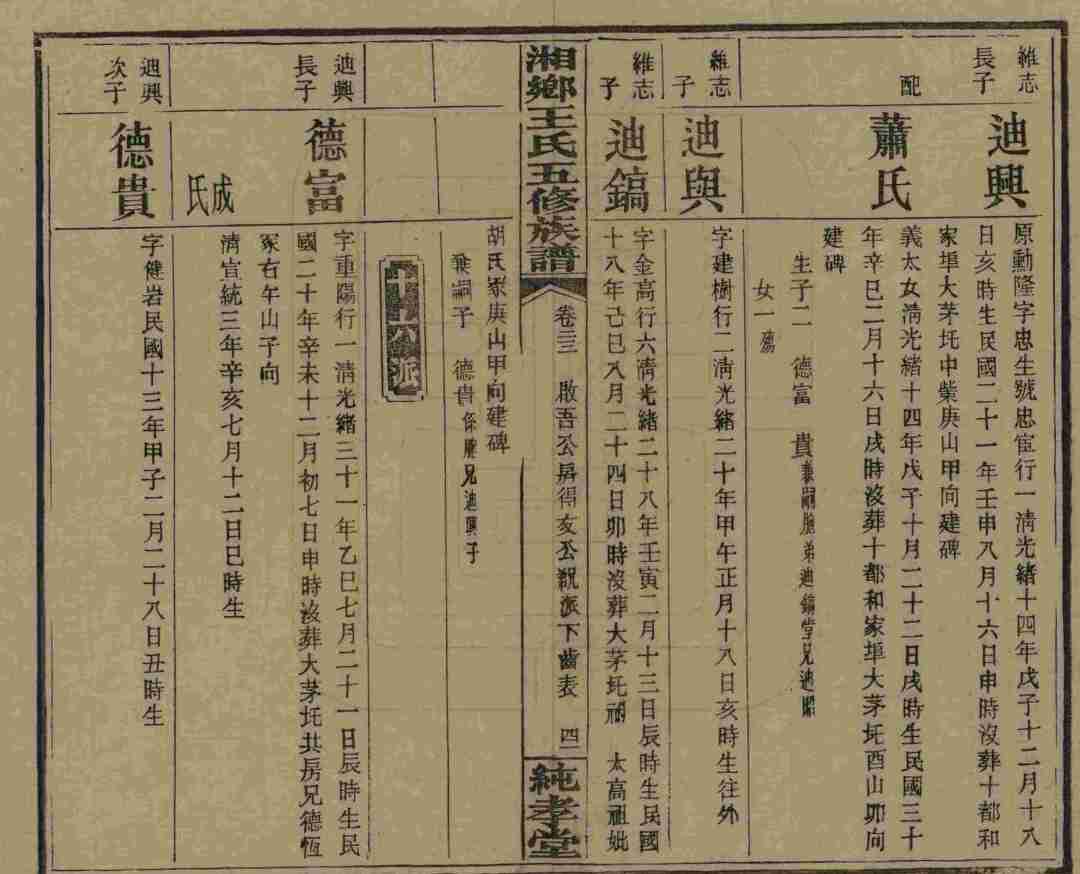 維志
長子
迪興
原勳隆字忠生號忠宦行一清光緒十四年戊子十二月十八
日亥時生民國二十一年壬申八月十六日申時沒葬十都和
家埠大茅坵中㘭庚山甲向建碑
配
蕭氏
義太女清光緒十四年戊子十月二十二日戌時生民國三十
年辛巳二月十六日戌時沒葬十都和家埠大茅坵酉山卯向
建碑
生子二 德富 貴兼嗣胞弟迪鎬堂兄迪照
女一殤
維志
子
迪與
字建樹行二清光緒二十年甲午正月十八日亥時生往外
維志
子
迪鎬
字金高行六清光緒二十八年壬寅二月十三日辰時生民國
十八年己巳八月二十四日卯時沒葬大茅坵祠 太高祖妣
湘鄉王氏五修族譜
卷三三 啟吾公房得友公 派下齒表 四一
純孝堂
胡氏冢庚山甲向建碑
兼嗣子 德貴係胞兄迪興子
派
迪興
長子
德富
字重陽行一清光緒三十一年乙巳七月二十一日辰時生民
國二十年辛未十二月初七日申時沒葬大茅坵共房兄德恆
冢右午山子向
成氏
清宣統三年辛亥七月十二日巳時生
迪興
次子
德貴
字健岩民國十三年甲子二月二十八日丑時生